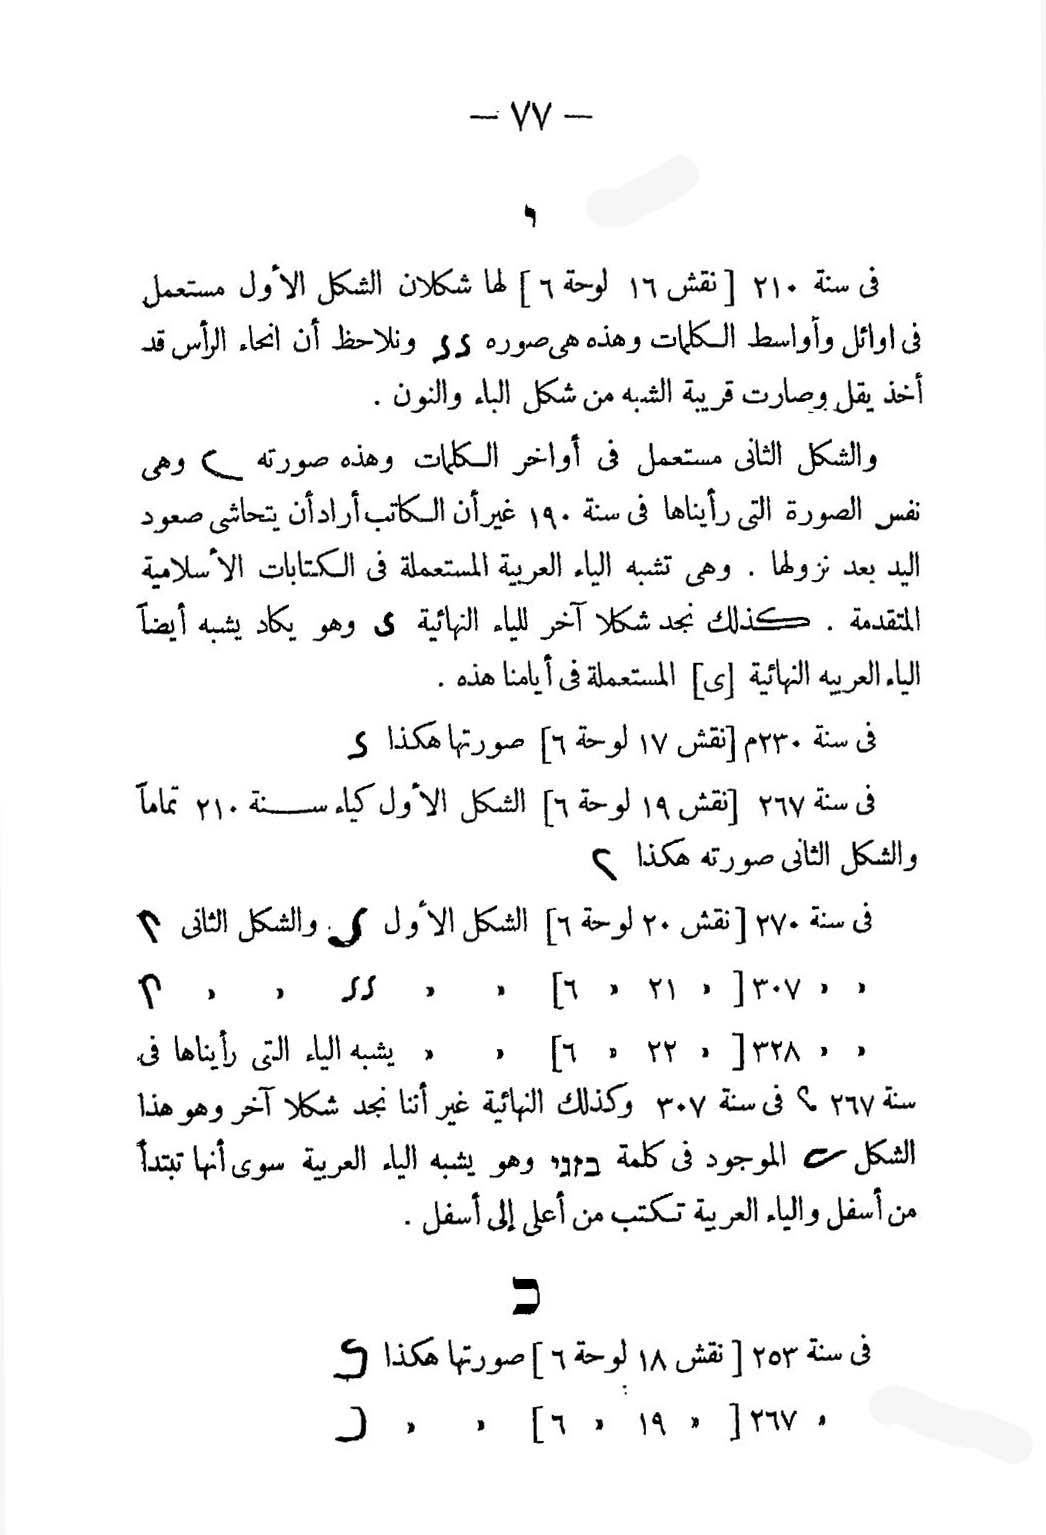 — ٧٧ —
י
فى سنة ٢١٠ [نقش ١٦ لوحة ٦] لها شكلان الشكل الأول مستعمل
فى اوائل وأواسط الكلمات وهذه هى صوره ونلاحظ أن انحاء الرأس قد
أخذ يقل وصارت قريبة الشبه من شكل الباء والنون .
والشكل الثانى مستعمل فى أواخر الكلمات وهذه صورته وهى
نفس الصورة التى رأيناها فى سنة ١٩٠ غير أن الكاتب أراد أن يتحاشى صعود
اليد بعد نزولها . وهى تشبه الياء العربية المستعملة فى الكتابات الأسلامية
المتقدمة . كذلك نجد شكلا آخر للياء النهائية وهو يكاد يشبه أيضاً
الياء العربيه النهائية [ى] المستعملة فى أيامنا هذه .
فى سنة ٢٣٠م [نقش ١٧ لوحة ٦] صورتها هكذا
فى سنة ٢٦٧ [نقش ١٩ لوحة ٦] الشكل الأول كياء سنة ٢١٠ تماماً
والشكل الثانى صورته هكذا
فى سنة ٢٧٠ [نقش ٢٠ لوحة ٦] الشكل الأول والشكل الثانى
« « ٣٠٧ [ « ٢١ « ٦] « « « « «
« « ٣٢٨ [ « ٢٢ « ٦] « « يشبه الياء التى رأيناها فى
سنة ٢٦٧ فى سنة ٣٠٧ وكذلك النهائية غير أننا نجد شكلا آخر وهو هذا
الشكل الموجود فى كلمة وهو يشبه الياء العربية سوى أنها تبتدأ
من أسفل والياء العربية تكتب من أعلى إلى أسفل .
כ
فى سنة ٢٥٣ [نقش ١٨ لوحة ٦] صورتها هكذا
« ٢٦٧ [ « ١٩ « ٦] « «